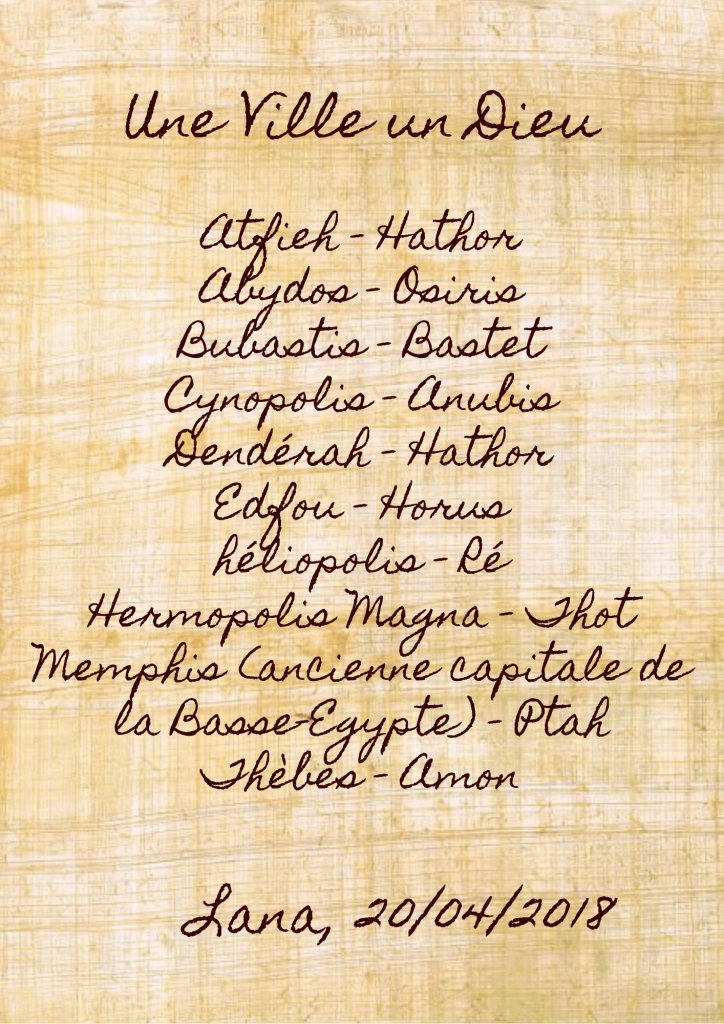 Une Ville un Dieu
Atfieh - Hathor
Abydos - Osiris
Bubastis - Bastet
Cynopolis - Anubis
Dendérah - Hathor
Edfou - Horus
héliopolis - Ré
Hermopolis Magna - Thot
Memphis (ancienne capitale de
la Basse-Egypte) - Ptah
Thèbes - Amon
Lana, 20/04/2018